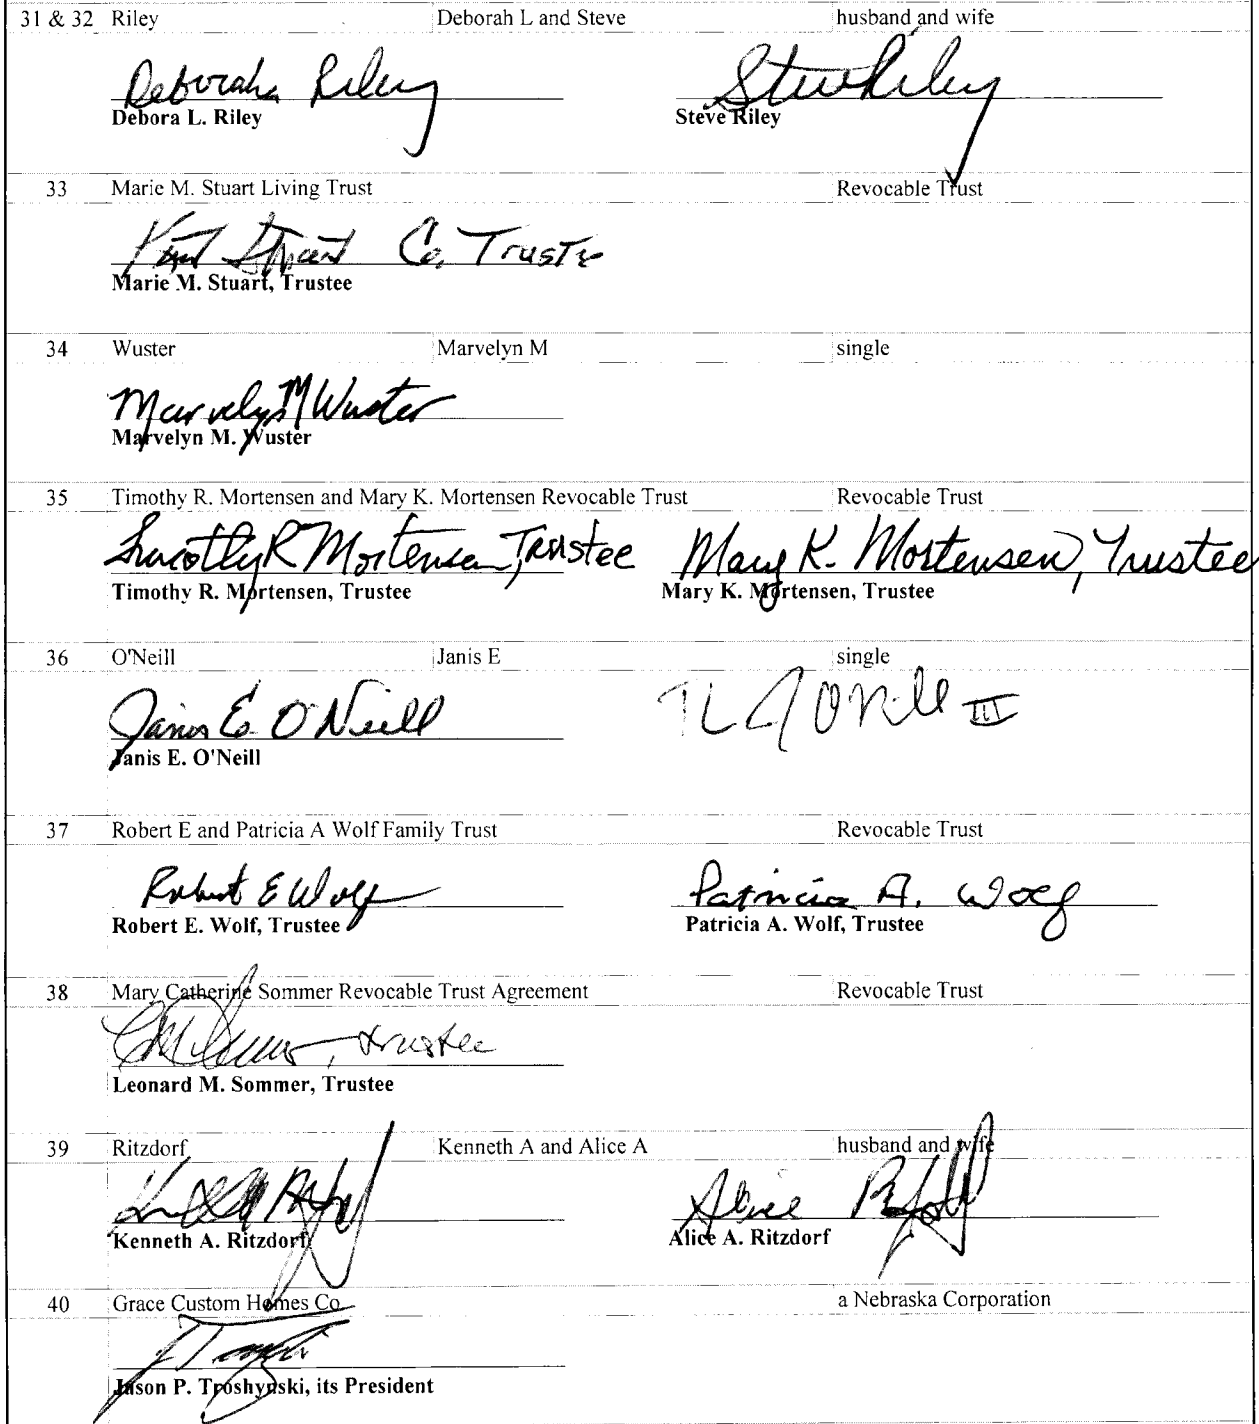 31 & 32 Riley Deborah L and Steve husband and wife
Deborah Riley Steve Riley
Debora L. Riley Steve Riley
33 Marie M. Stuart Living Trust Revocable Trust
Stuart Co. Trustee
Marie M. Stuart, Trustee
34 Wuster Marvelyn M single
Marvelyn M Wuster
Marvelyn M. Wuster
35 Timothy R. Mortensen and Mary K. Mortensen Revocable Trust Revocable Trust
Timothy R Mortensen, Trustee Mary K. Mortensen, Trustee
Timothy R. Mortensen, Trustee Mary K. Mortensen, Trustee
36 O'Neill Janis E single
Janis E. O'Neill III
Janis E. O'Neill
37 Robert E and Patricia A Wolf Family Trust Revocable Trust
Robert E Wolf Patricia A. Wolf
Robert E. Wolf, Trustee Patricia A. Wolf, Trustee
38 Mary Catherine Sommer Revocable Trust Agreement Revocable Trust
, trustee
Leonard M. Sommer, Trustee
39 Ritzdorf Kenneth A and Alice A husband and wife
Alice
Kenneth A. Ritzdorf Alice A. Ritzdorf
40 Grace Custom Homes Co a Nebraska Corporation
Jason P. Troshynski, its President